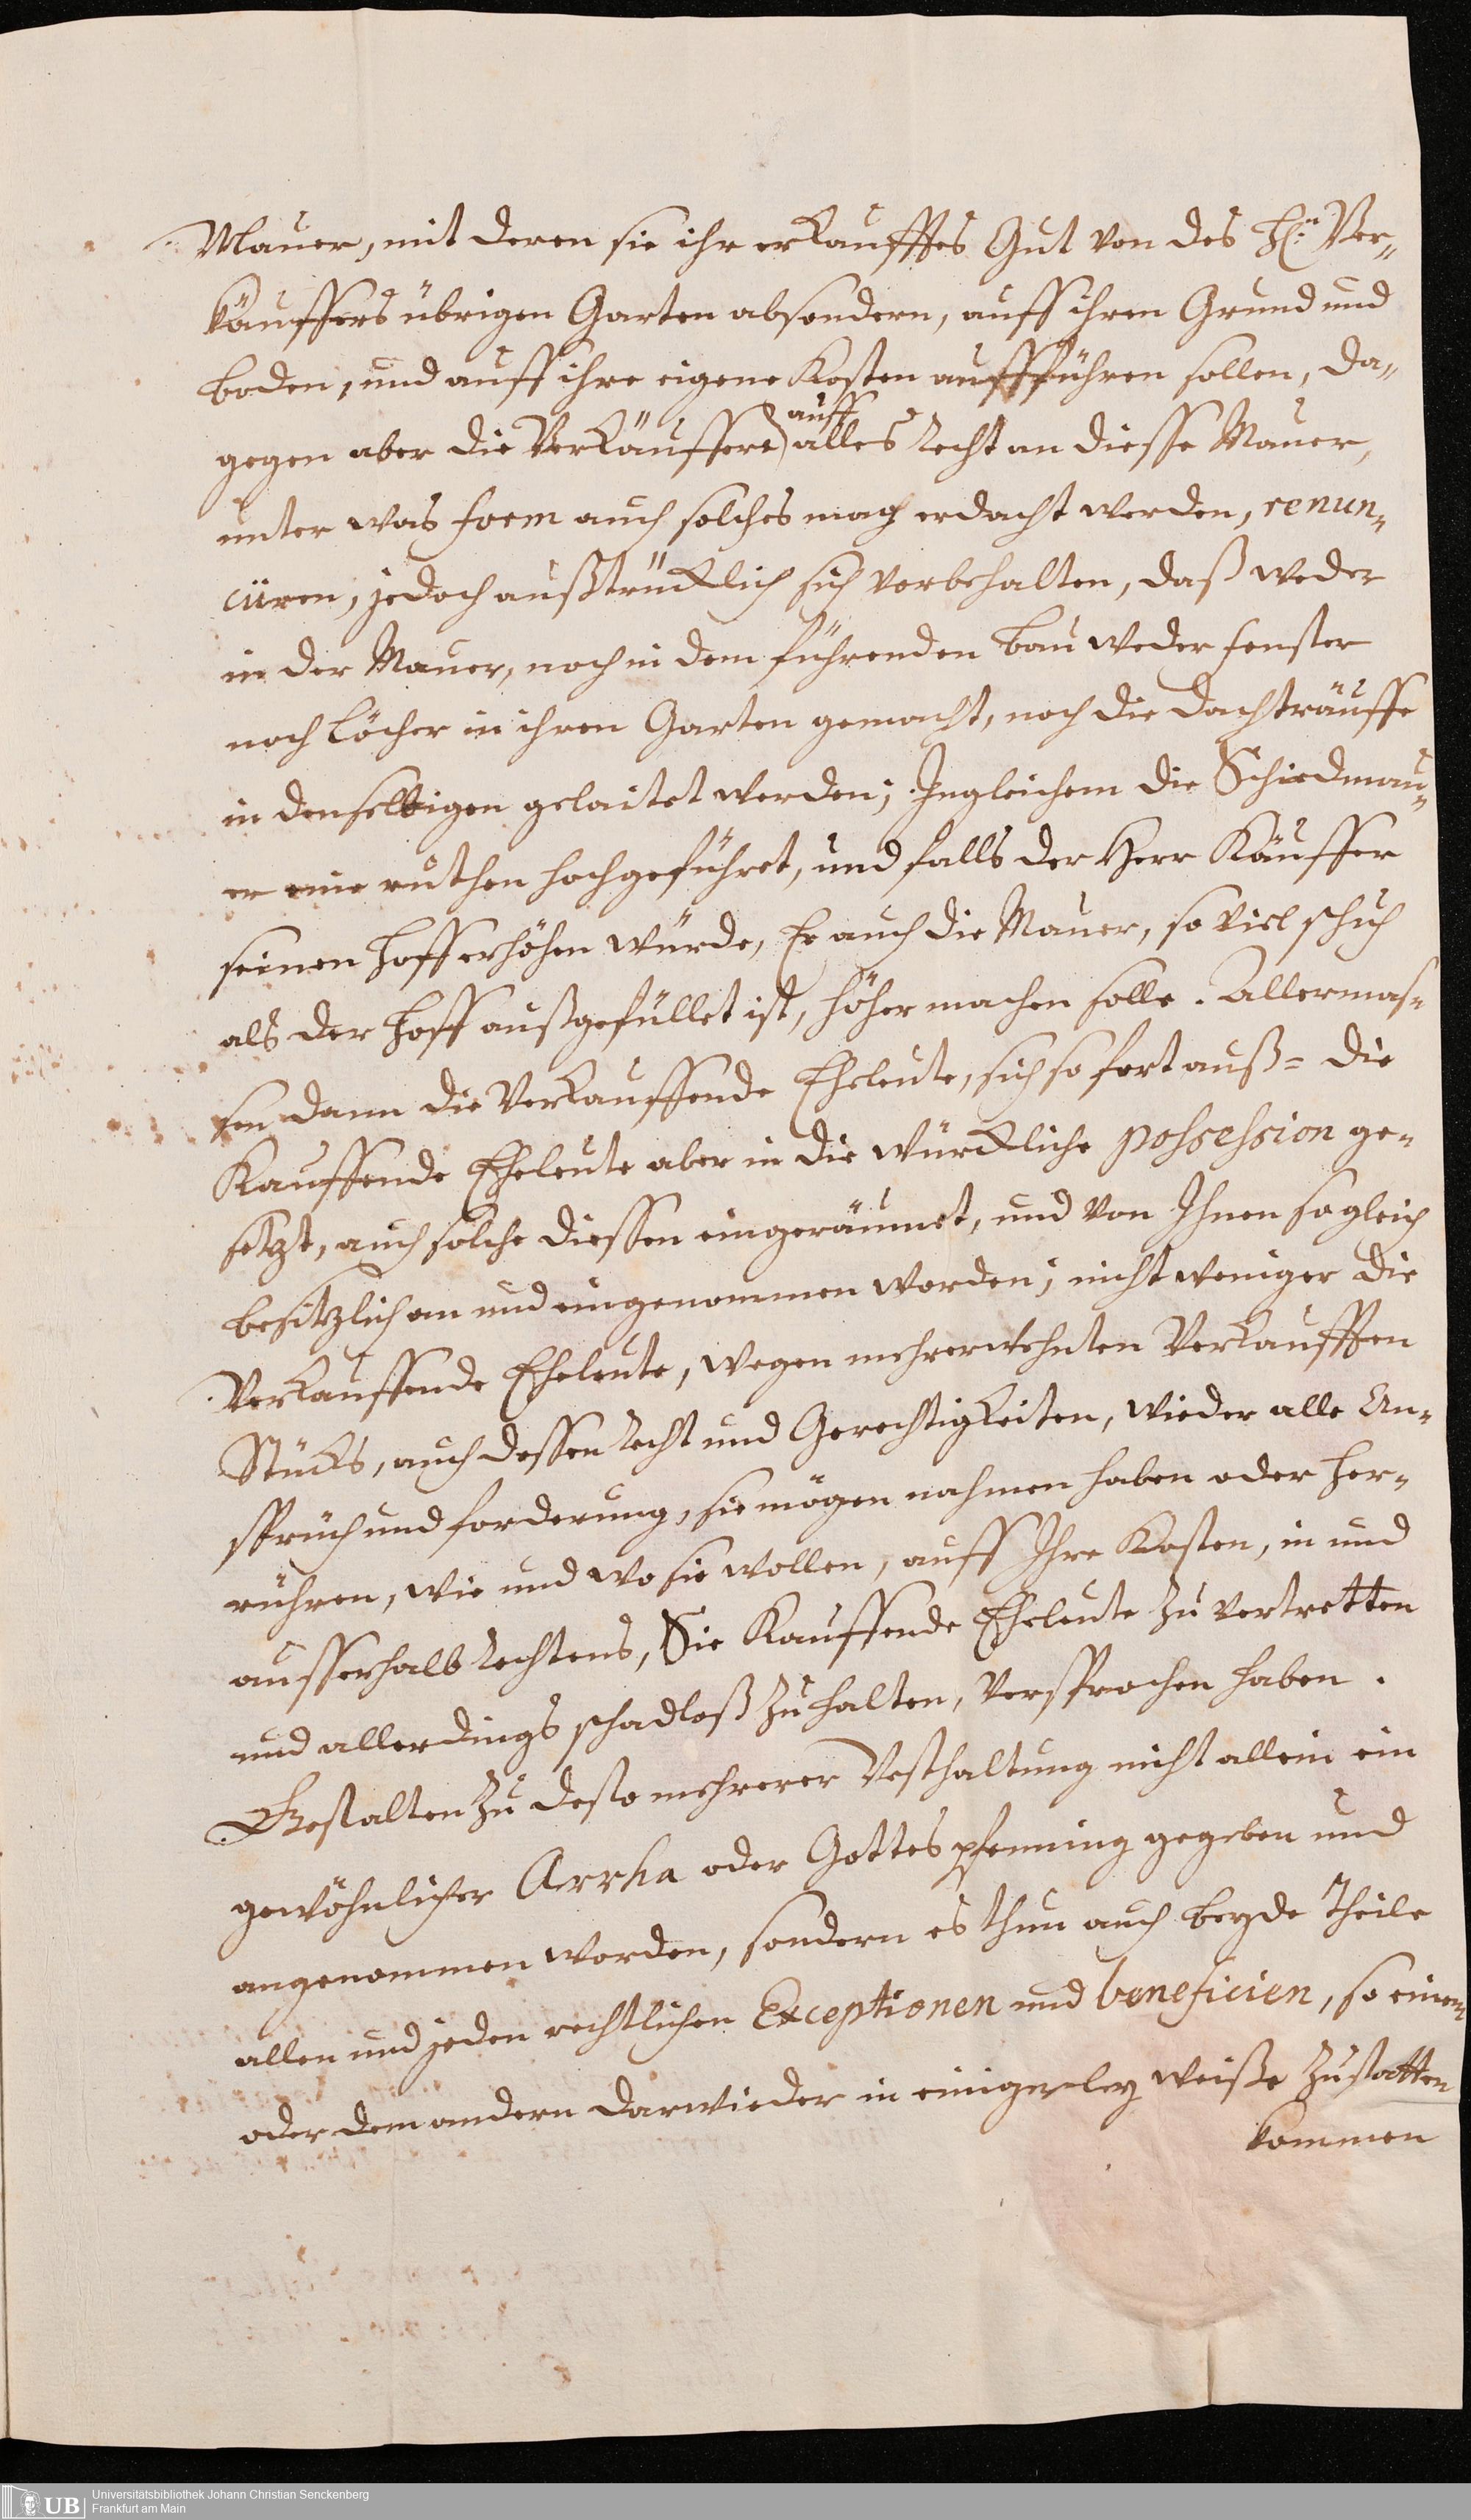 Mauer, mit deren sie ihr erkaufftes Gut von des H: Ver-
käuffers übrigen Garten absondern, auff ihren Grund und
boden, und auff ihre eigene Kosten aufführen sollen, da-
gegen aber die Verkäuffere auff alles Recht an diesse Mauer,
unter was form auch solches mag erdacht werden, renun-
ciiren, jedoch außtrücklich sich vorbehalten, daß weder
in der Mauer, noch in dem führenden bau weder fenster
noch löcher in ihren Garten gemacht, noch die dachträuffe
in denselbigen gelaitet werden; Ingleichem die Schiedmau-
er eine ruthen hochgeführet, und falls der Herr Käuffer
seinen Hoff erhöhen würde, Er auch die Mauer, so viel schuh
als der Hoff außgefüllet ist, höher machen solle. Allermas-
sen dann die Verkauffende Eheleute, sich so fort auß- die
Kauffende Eheleute aber in die würckliche possession ge-
setzt, auch solche diessen eingeräumet, und von Ihnen sogleich
besitzlich an und eingenommen worden; nicht weniger die
Verkauffende Eheleute, wegen mehrerwehnten Verkaufften
Stücks, auch dessen Recht und Gerechtigkeiten, wieder alle An-
sprüch und forderung, sie mögen nahmen haben oder her-
rühren, wie und wo sie wollen, auff Ihre Kosten, in und
ausserhalb Rechtens, Sie Kauffende Eheleute zu vertretten
und allerdings schadloß zu halten, versprochen haben.
Gestalten zu desto mehrerer Vesthaltung nicht allein ein
gewöhnlicher Arrha oder Gottespfenning gegeben und
angenommen worden, sondern es thun auch beyde Theile
allen und jeden rechtlichen Exceptionen und beneficien, so einem
oder dem andern darwieder in einigerley weiße zustatten
kommen
Universitätsbibliothek Johann Christian Senckenberg
Frankfurt am Main
UB